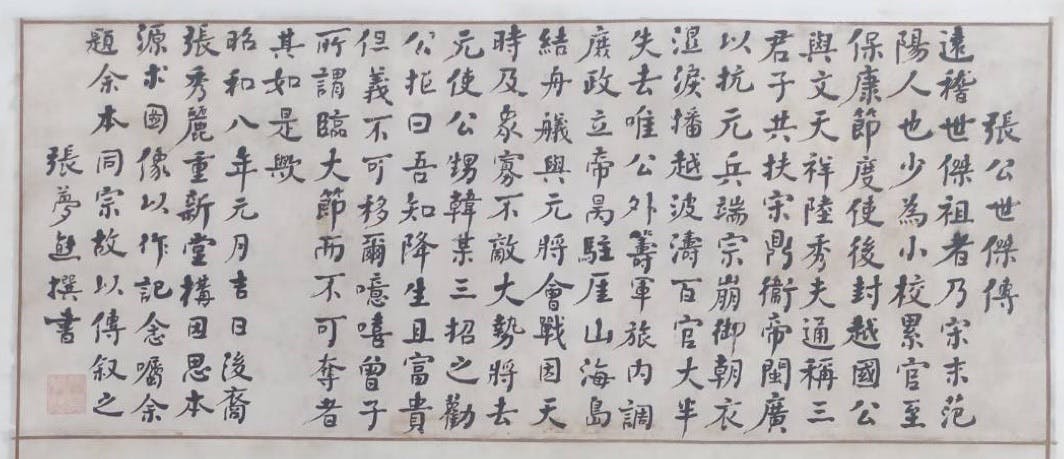 張公世傑傳
遠稽世傑祖者乃宋末范
陽人也少為小校累官至
保康節度使後封越國公
與文天祥陸秀夫通稱三
君子共扶宋鼎衛帝閩廣
以抗元兵端宗崩御朝衣
濕淚播越波濤百官大半
失去唯公外籌軍旅內調
庶政立帝昺駐厓山海島
結舟艤與元將會戰因天
時及衆寡不敵大勢將去
元使公甥韓某三招之勸
公拒曰吾知降生且富貴
但義不可移爾噫嘻曾子
所謂臨大節而不可奪者
其如是歟
昭和八年元月吉日後裔
張秀麗重新堂構因思本
源求國像以作記念囑余
題余本同宗故以傳叙之
張夢撰書